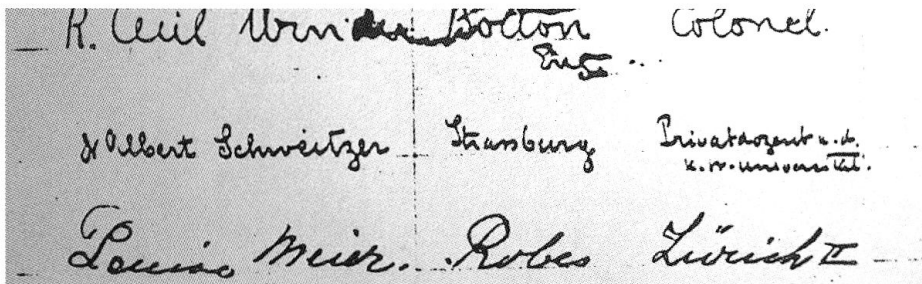 R. Cecil Winder Bolton Colonel.
Eng.
Dr Albert Schweitzer Strassburg Privatdozent a. d.
K. W. Universität.
Louise Meier. Robes Zürich II